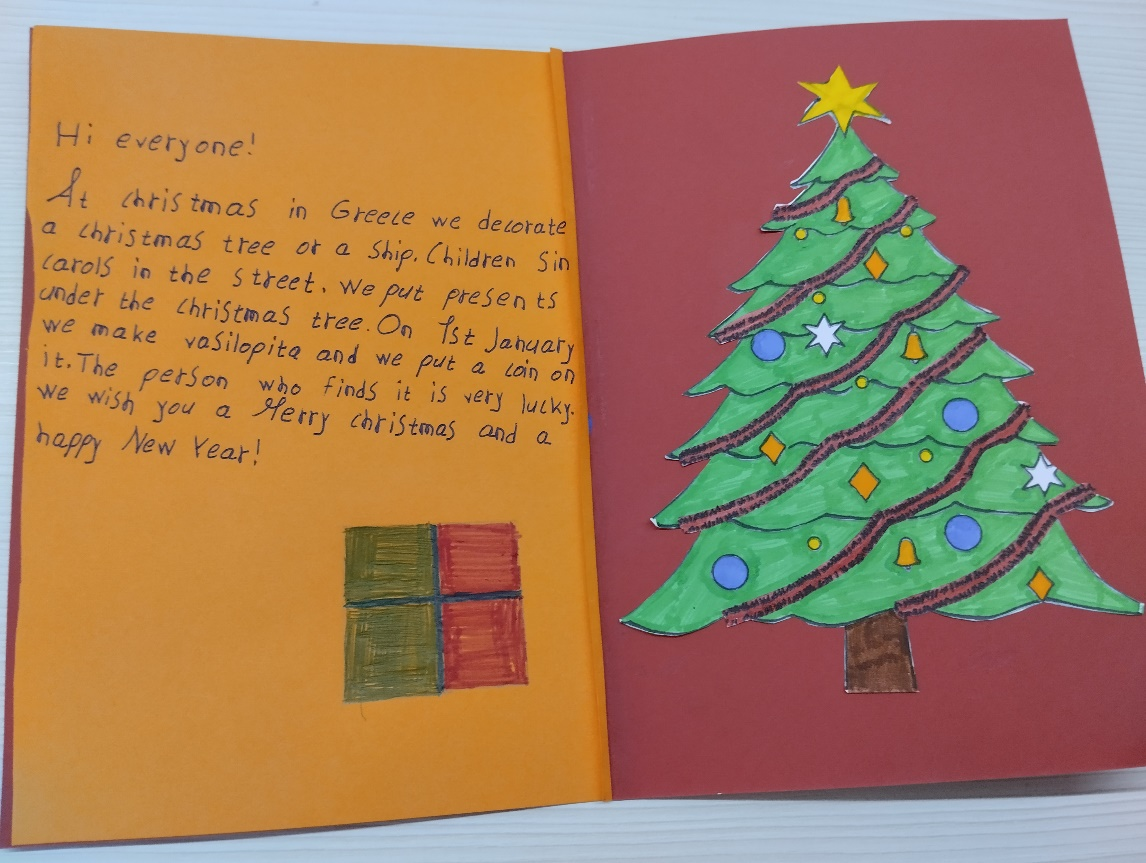 Hi everyone!
At christmas in Greece we decorate
a christmas tree or a ship. Children sin
carols in the street. We put presents
under the christmas tree. On 1st January
we make vasilopita and we put a coin on
it. The person who finds it is very lucky.
We wish you a Merry christmas and a
happy New Year!